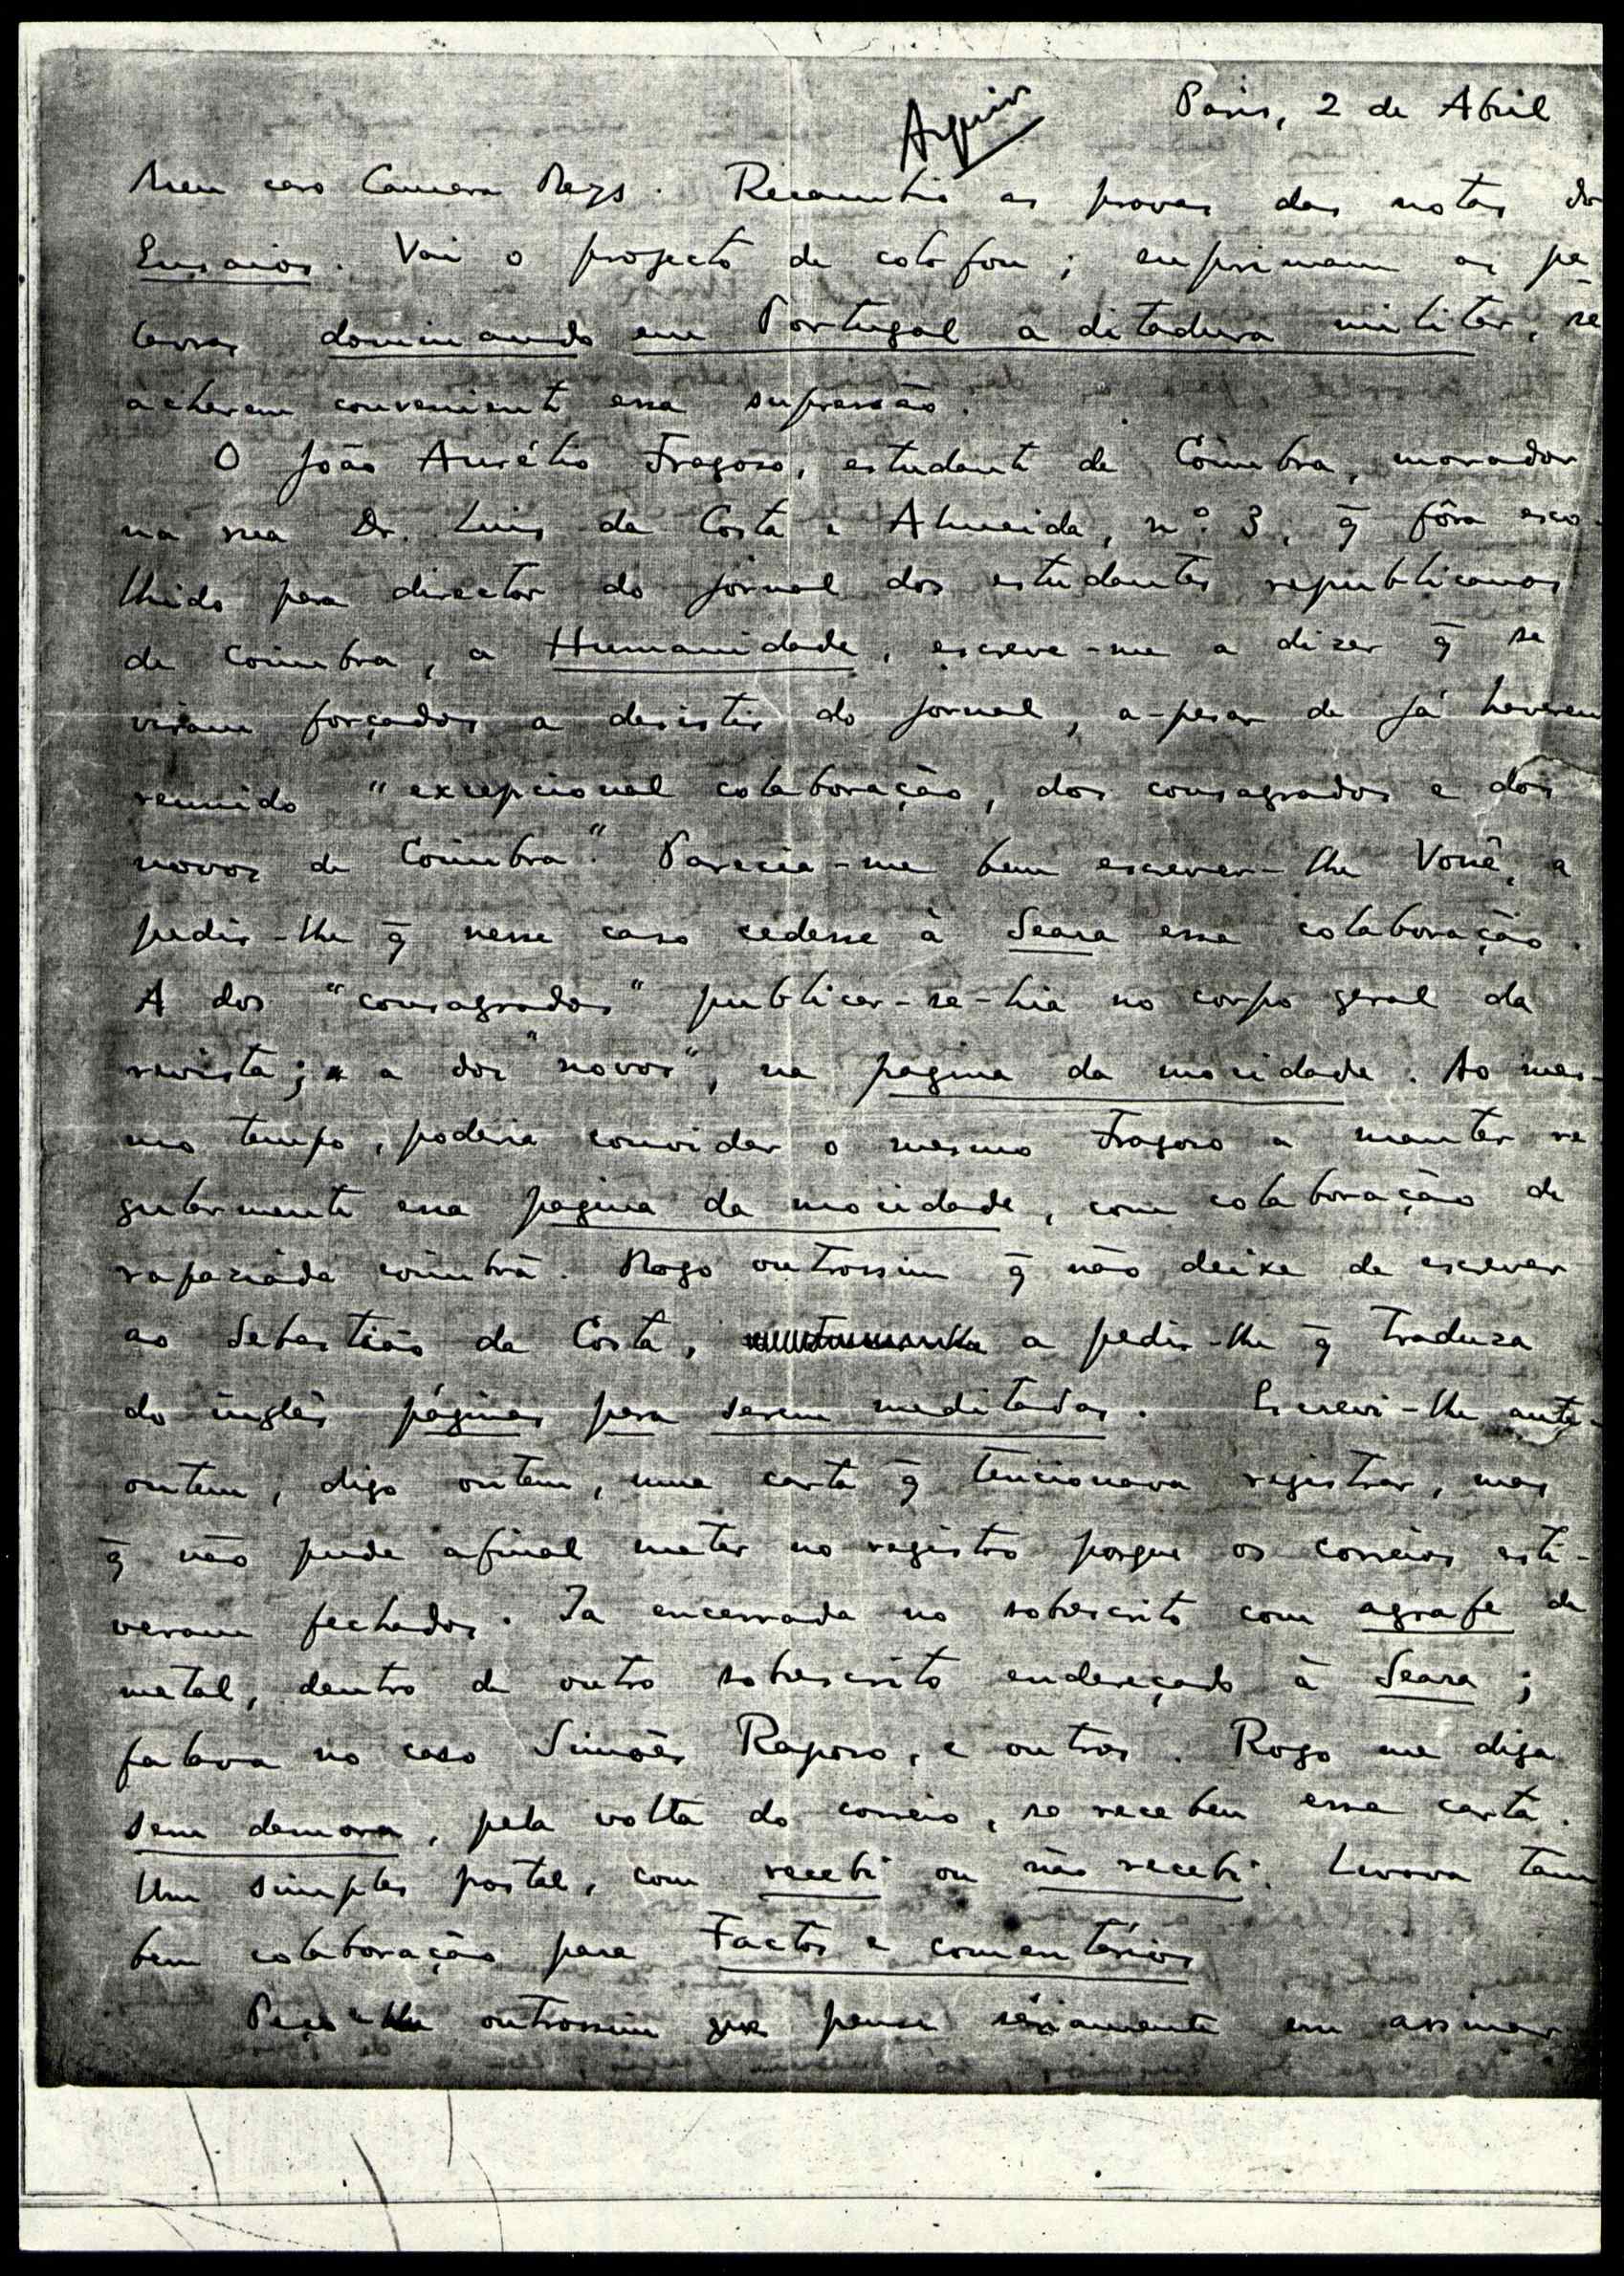 Paris, 2 de Abril
Arquivo
Meu caro Camara Reys. Recambio as provas das notas dos
Ensaios. Vai o projecto de colofon; suprimam as pa-
lavras dominando em Portugal a ditadura militar, se
acharem conveniente essa supressão.
O João Aurélio Fragoso, estudante de Coimbra, morador
na rua Dr. Luis da Costa e Almeida, nº. 3, q̄ fôra esco-
lhido para director do jornal dos estudantes republicanos
de Coimbra, a Humanidade, escreve-me a dizer q̄ se
viram forçados a desistir do jornal, a-pesar de já haverem
reunido "excepcional colaboração, dos consagrados e dos
novos de Coimbra". Parecia-me bem escrever-lhe Você, a
pedir-lhe q̄ nesse caso cedesse à Seara essa colaboração.
A dos "consagrados" publicar-se-hia no corpo geral da
revista; a dos "novos", na pagina da mocidade. Ao mes-
mo tempo, poderia convidar o mesmo Fragoso a manter re
gularmente essa pagina da mocidade, com colaboração de
rapaziada coimbrã. Rogo outrossim q̄ não deixe de escrever
ao Sebastião da Costa, a pedir-lhe q̄ traduza
do inglês páginas para serem meditadas. Escrevi-lhe ante-
ontem, digo ontem, uma carta q̄ tencionava registrar, mas
q̄ não pude afinal meter no registro porque os correios esti-
veram fechados. Ia encerrada no sobrescrito com agrafe de
metal, dentro de outro sobrescrito endereçado à Seara;
falava no caso Simões Raposo, e outros. Rogo me diga
sem demora, pela volta do correio, se recebeu essa carta.
Um simples postal, com recebi ou não recebi. Levava tam
bem colaboração para Factos e comentários
Peço-lhe outrossim que pense sèriamente em assinar